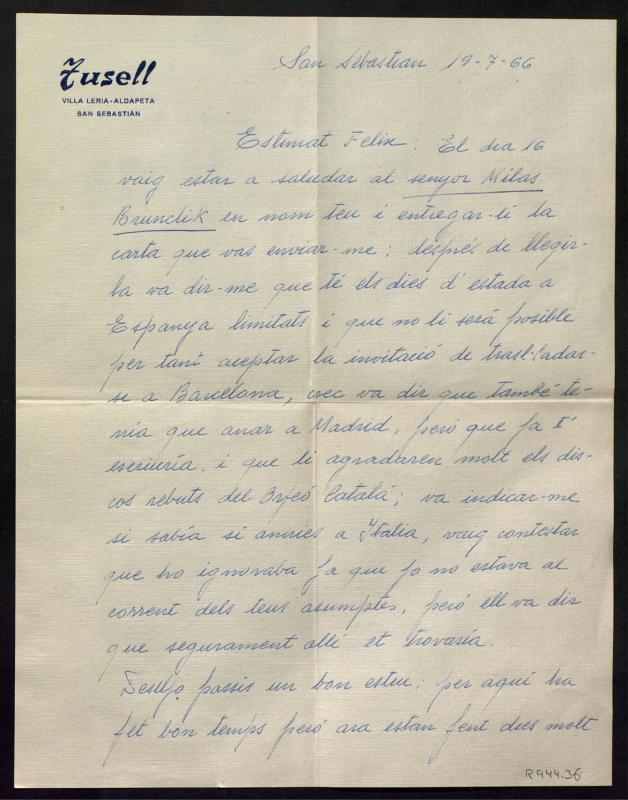 Tusell
VILLA LERIA-ALDAPETA
SAN SEBASTIÁN
San Sebastian 19-7-66
Estimat Felix: El dia 16
vaig estar a saludar al senyor Milas
Brunclik en nom teu i entregar-li la
carta que vas enviar-me; després de llegir-
la va dir-me que té els dies d'estada a
Espanya limitats i que no li será posible
per tant aceptar la invitació de trasl·ladar-
se a Barcelona, crec va dir que també te-
nia que anar a Madrid, peró que ja t'
escriuría, i que li agradaren molt els dis-
cos rebuts del Orfeó Catalá; va indicar-me
si sabía si aniries a Italia, vaig contestar
que ho ignoraba ja que jo no estava al
corrent dels teus asumptes, peró ell va dir
que segurament allí et trovaría.
Desitjo pasis un bon estiu; per aquí ha
fet bon temps peró ara estan fent dies molt
R944.36